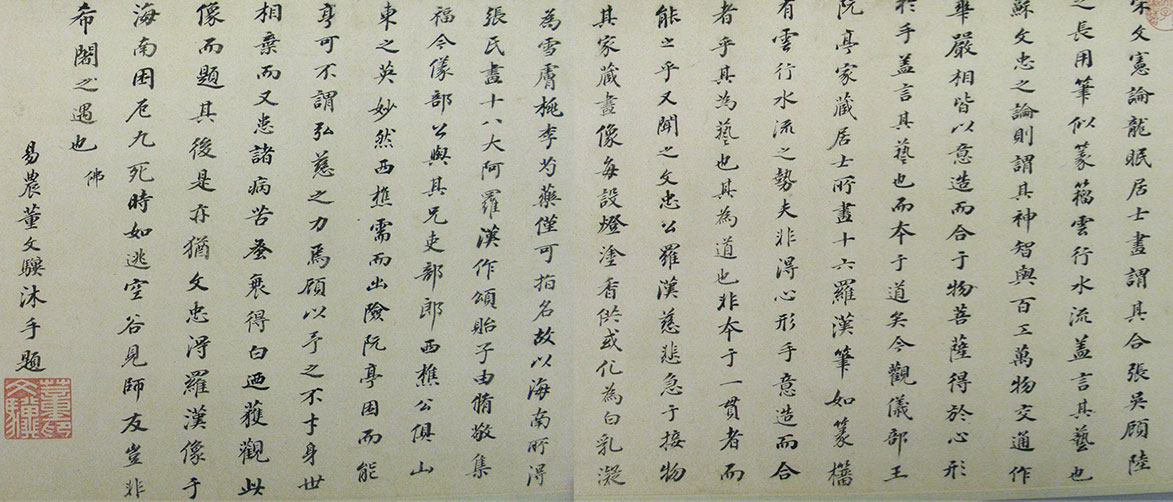 宋文憲論龍眠居士畫謂其合張吳顧陸
之長用筆似篆籀雲行水流盖言其藝也
蘇文忠之論則謂其神智與百工萬物交通作
華嚴相皆以意造而合于物菩薩得於心形
於手盖言其藝也而夲于道矣今觀儀部王
阮亭家藏居士所畫十六羅漢筆如篆籀
有雲行水流之勢夫非得心形手意造而合
者乎其為藝也其為道也非夲于一貫者而
能之乎又聞之文忠公羅漢慈悲急于接物
其家藏畫像每設燈塗香供或化為白乳凝
為雪膚桃李芍藥僅可指名故以海南所得
張氏畫十八大阿羅漢作頌貽子由脩敬集
福今儀部公與其兄吏部郎西樵公俱山
東之英妙然西樵需而出險阮亭困而能
亨可不謂弘慈之力焉顧以予之不才身世
相棄而又患諸病苦蚤衰得白迺獲觀此
像而題其後是亦猶文忠淂羅漢像于
海南困厄九死時如逃空谷見師友豈非
希闊之遇也
佛
易農董文驥沐手題
董文驥印